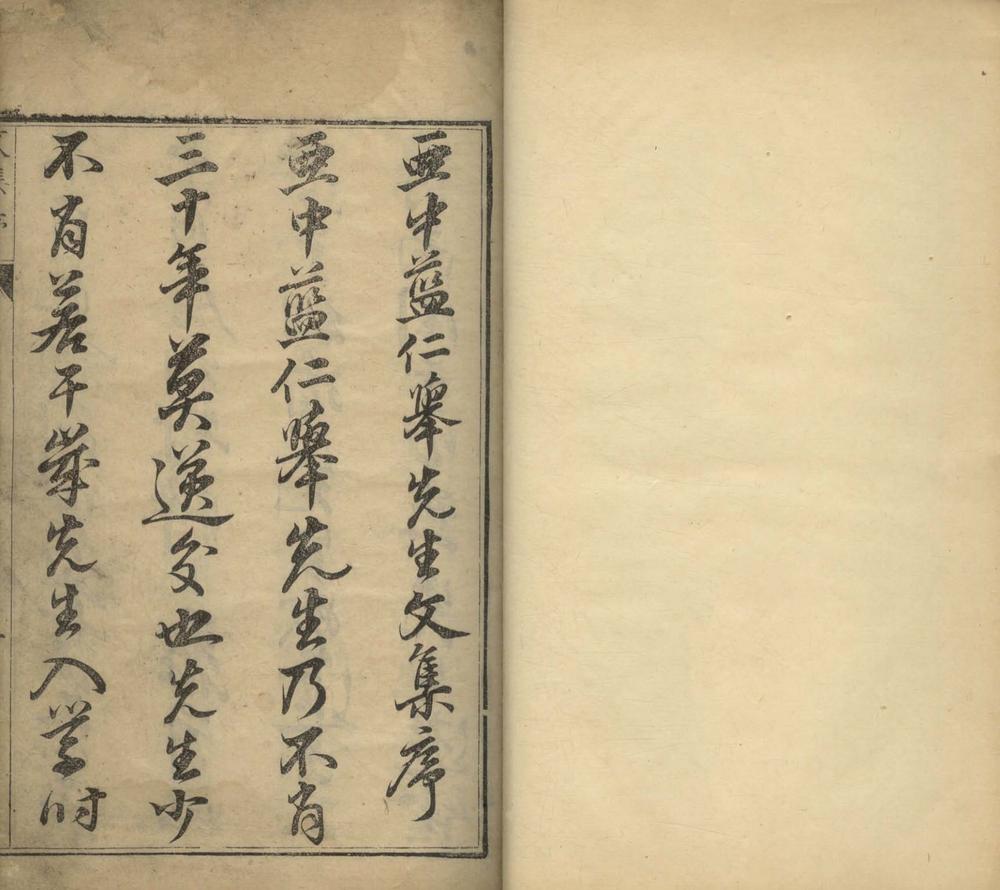 亞中藍仁皋先生文集序
亞中藍仁皋先生乃不肖
三十年莫逆交也先生少
不肖若干歲先生入学时